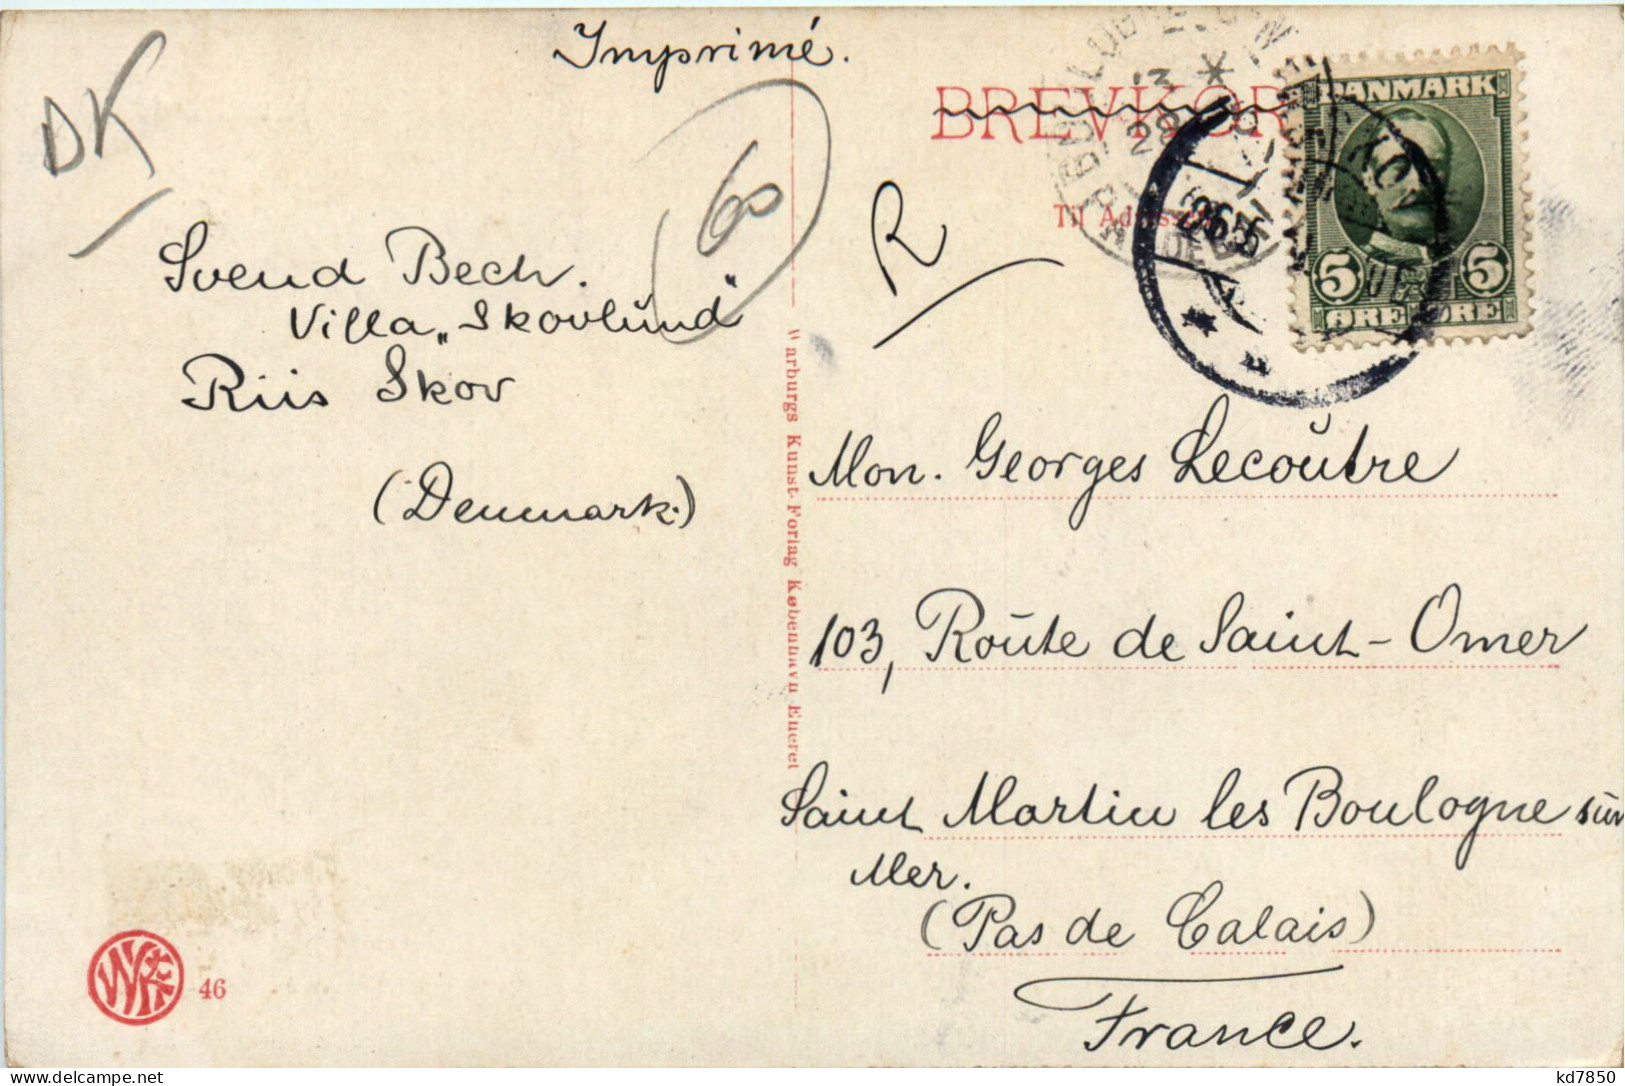 Imprimé.
DK
60
BREVKOR
Til
R
DANMARK
5 5
ØRE ØRE
Svend Bech.
Villa „Skovlund"
Riis Skov
(Denmark.)
Warburgs Kunst-Forlag København Eneret
Mon. Georges Lecoutre
103, Route de Saint-Omer
Saint Martin les Boulogne sur
Mer.
(Pas de Calais)
France.
46
kd7850